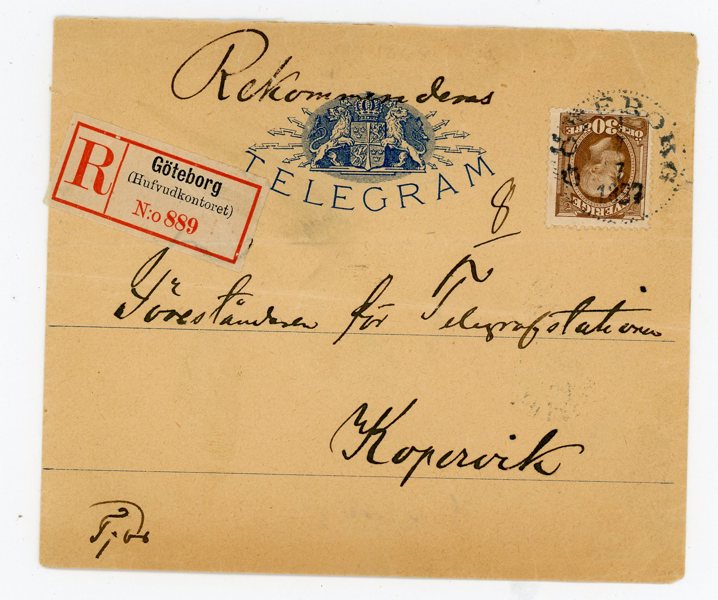 Rekommenderas
TELEGRAM
R
Göteborg
(Hufvudkontoret)
N:o 889
30
ÖRE
SVERIGE
GÖTEBORG
7
8
Föreståndaren för Telegrafstationen
Kopervik